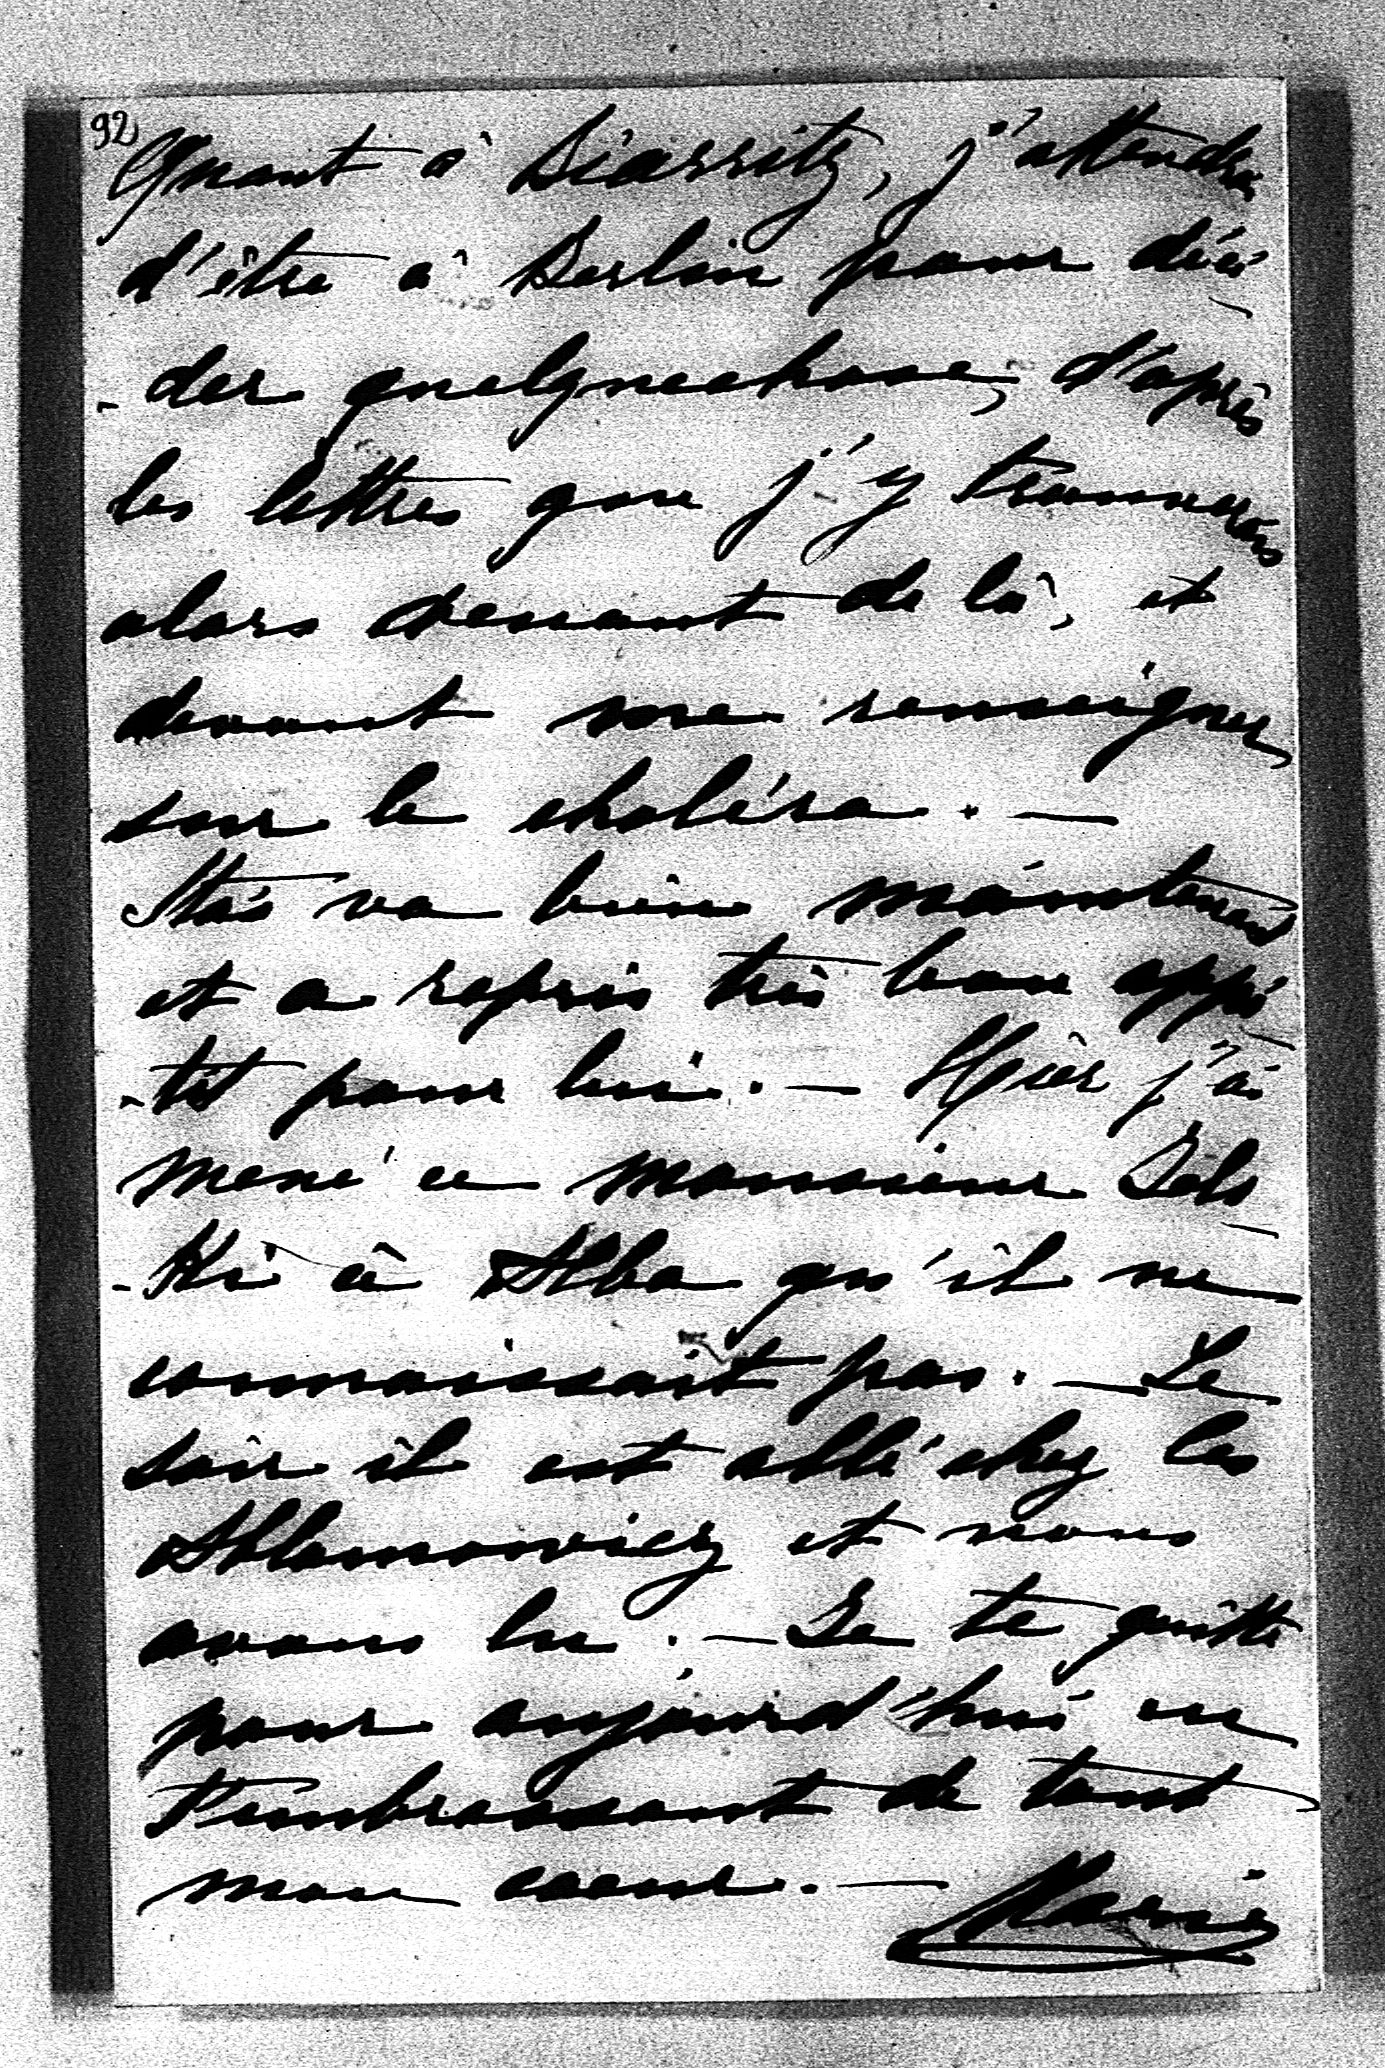 92
Quant à Biarritz, j'attendrai
d'être à Berlin pour déci-
-der quelquechose, d'après
les lettres que j'y trouverais
alors venant de là, et
devant me renseigner
sur le choléra. —
Stas va bien maintenant
et a repris très bon appé-
-tit pour lui. — Hier j'ai
mené ce monsieur
-ki à Alba qu'il ne
connaissait pas. — Le
soir il est allé chez les
et nous
avons lu. — Je te quitte
pour aujourd'hui en
t'embrassant de tout
mon coeur. —
Marie